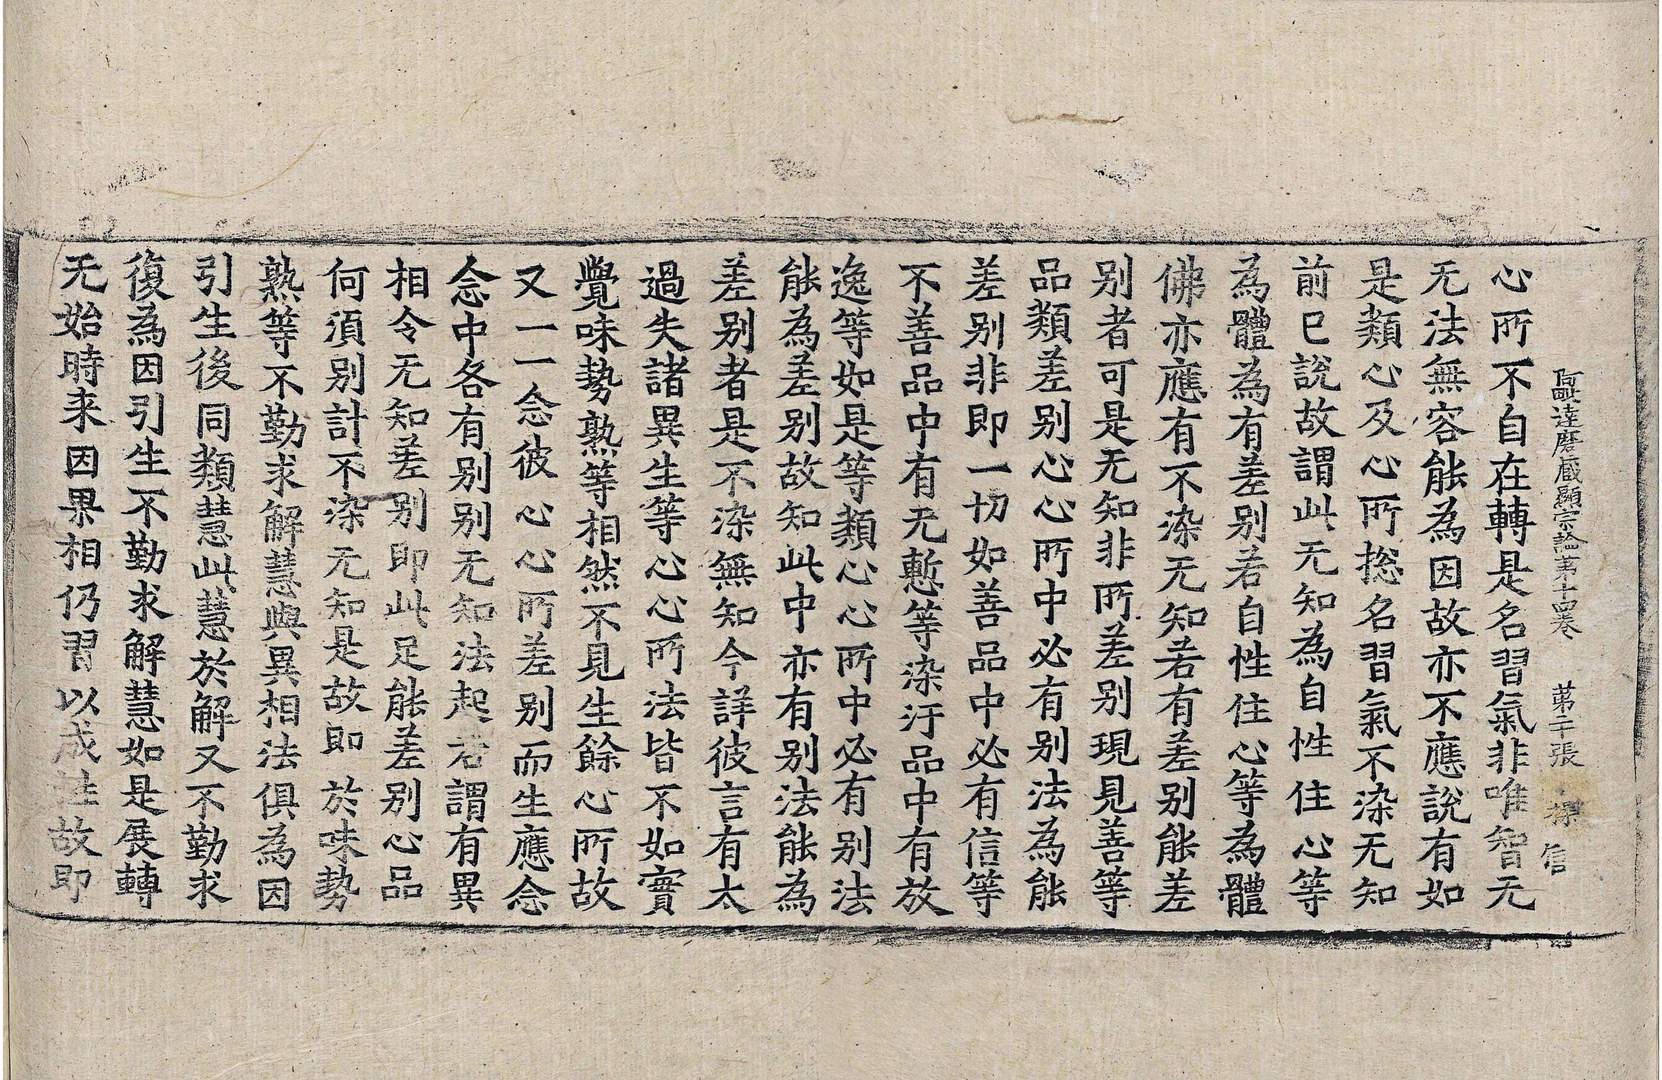 阿毗達磨藏顯宗論第十四卷　第二十張　信
心所不自在轉是名習氣非唯智无
无法無容能為因故亦不應說有如
是類心及心所揔名習氣不染无知
前已說故謂此无知為自性住心等
為體為有差别若自性住心等為體
佛亦應有不染无知若有差别能差
别者可是无知非所差别現見善等
品類差别心心所中必有别法為能
差别非即一切如善品中必有信等
不善品中有无慙等染汙品中有放
逸等如是等類心心所中必有别法
能為差别故知此中亦有别法能為
差别者是不染無知今詳彼言有太
過失諸異生等心心所法皆不如實
覺味勢熟等相然不見生餘心所故
又一一念彼心心所差别而生應念
念中各有别别无知法起若謂有異
相令无知差别即此足能差别心品
何須别計不染无知是故即於味勢
熟等不勤求解慧與異相法俱為因
引生後同類慧此慧於解又不勤求
復為因引生不勤求解慧如是展轉
无始時来因果相仍習以成性故即